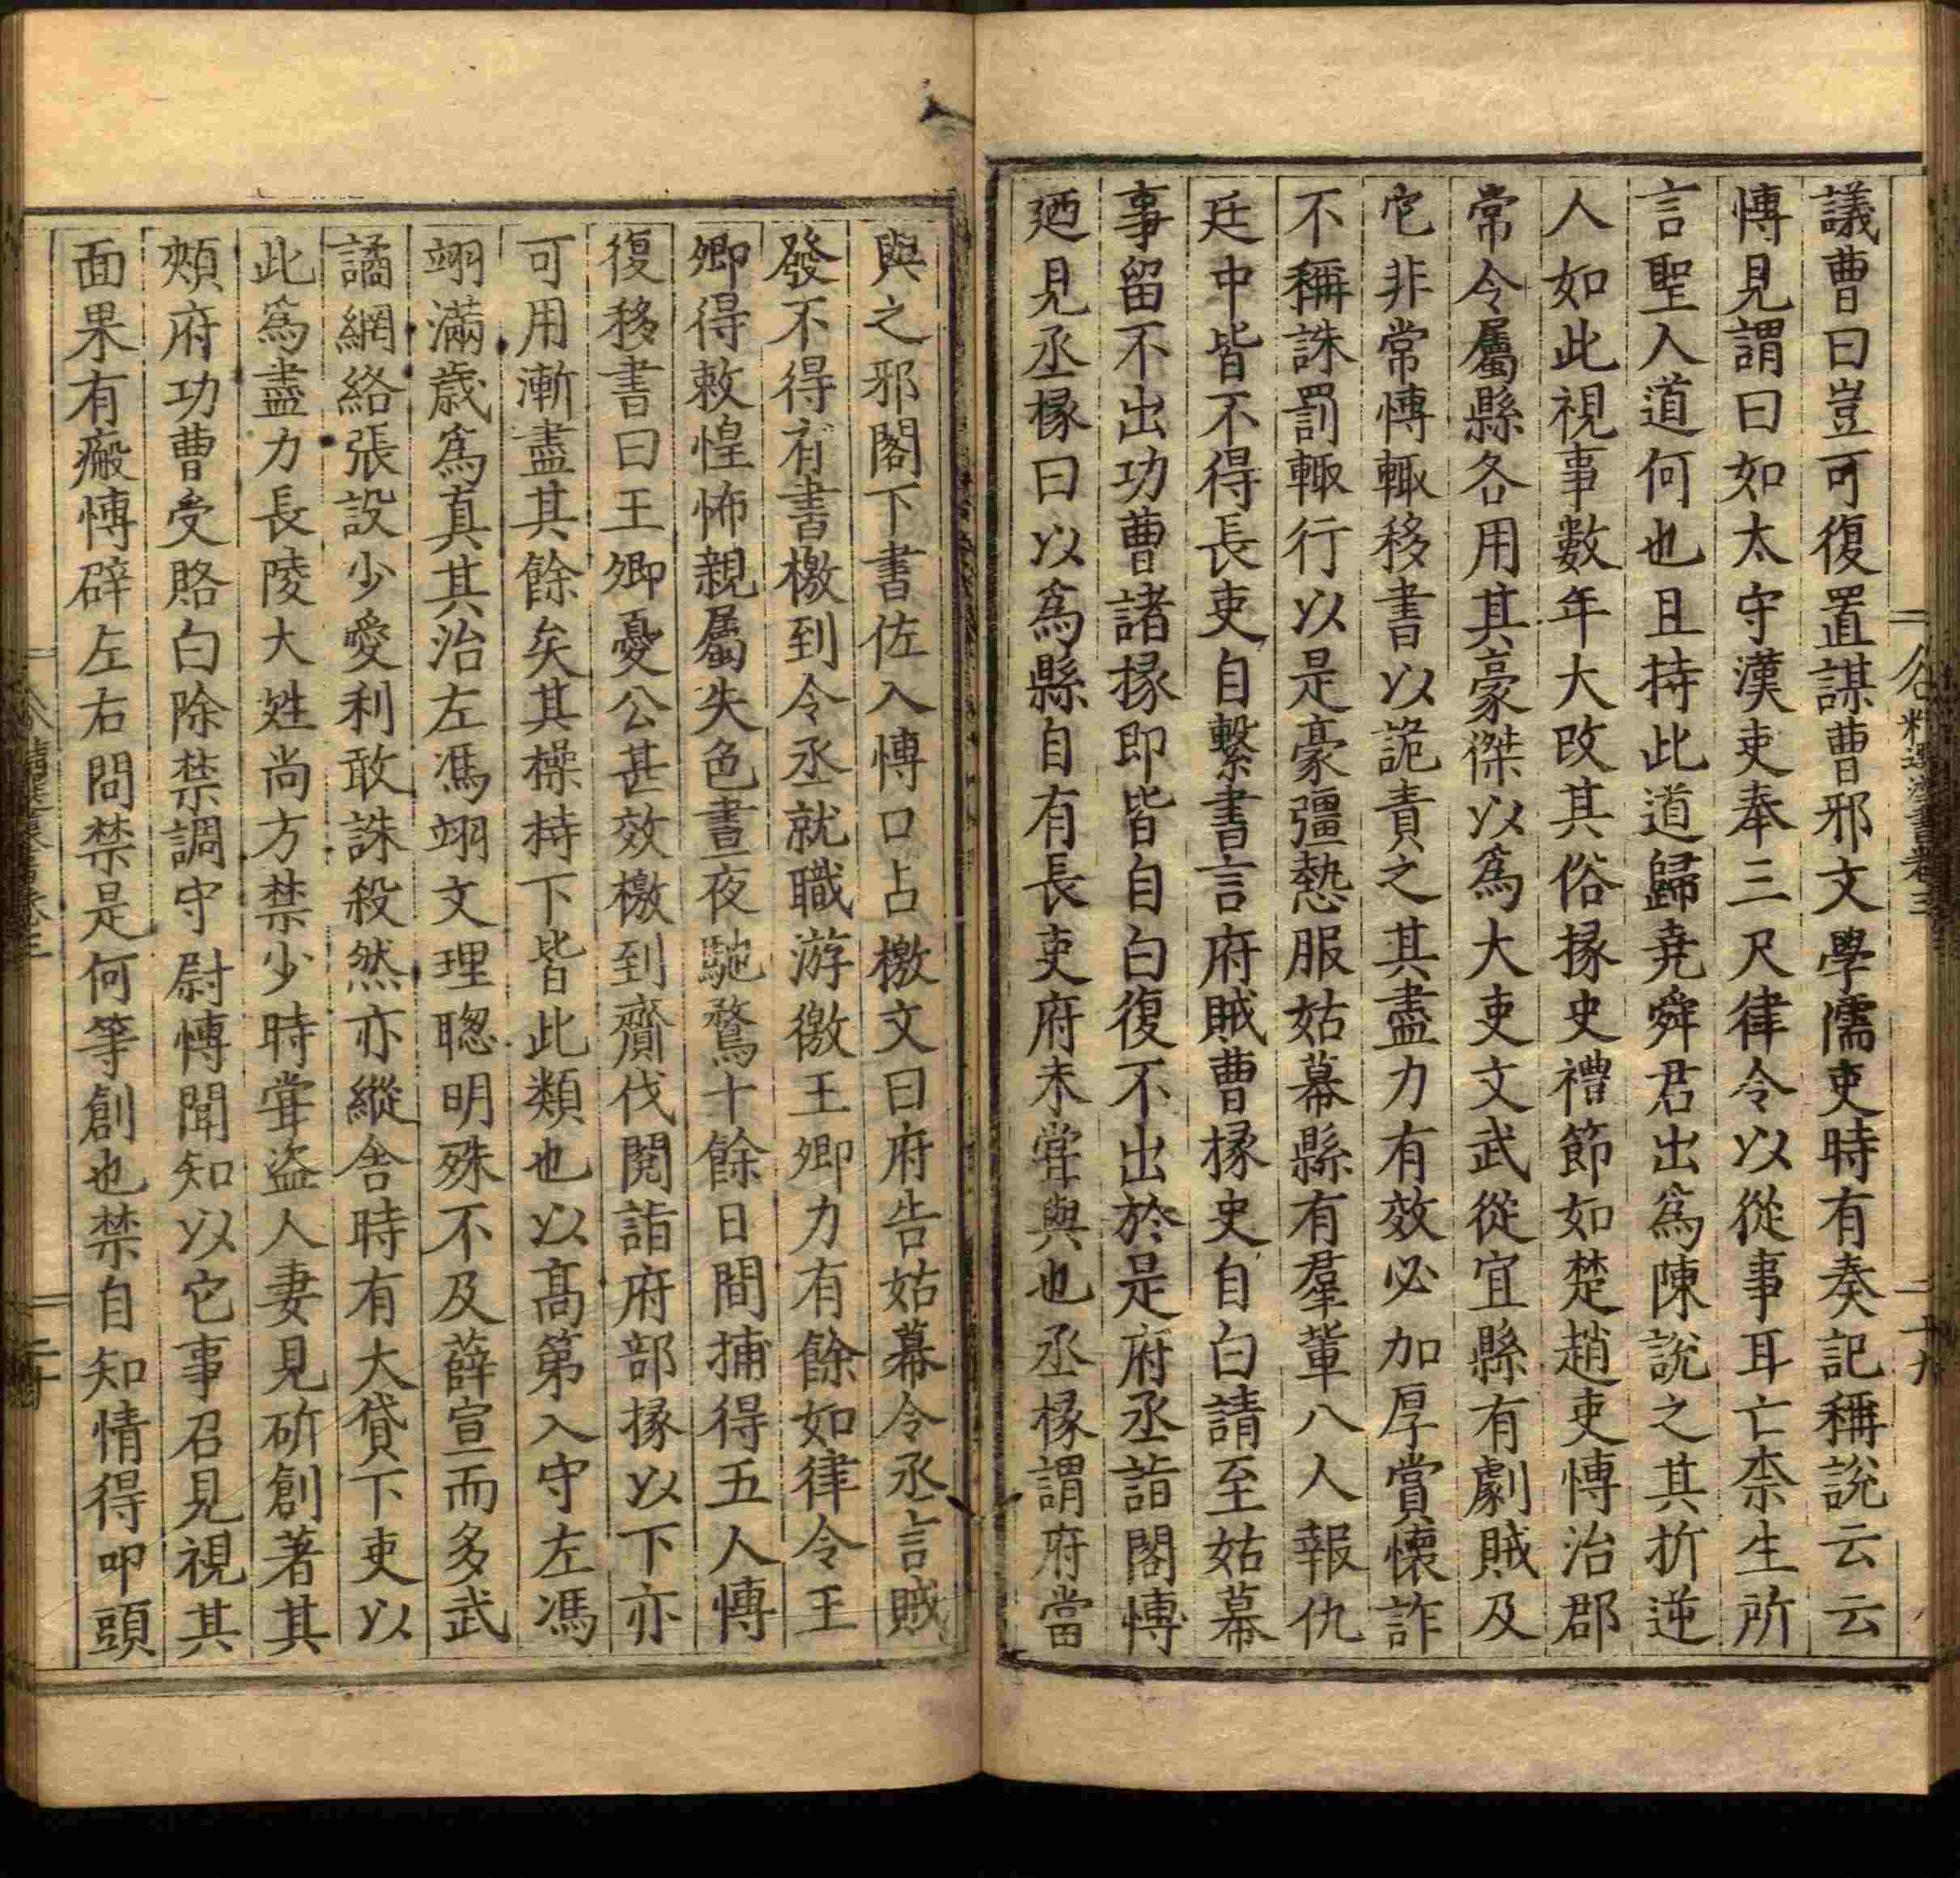 精選漢書卷三
十九
議曹曰豈可復置謀曹邪文學儒吏時有奏記稱說云云
愽見謂曰如太守漢吏奉三尺律令以從事耳亡柰生所
言聖人道何也且持此道歸堯舜君出爲陳說之其折逆
人如此視事數年大改其俗掾史禮節如楚趙吏愽治郡
常令屬縣各用其豪傑以爲大吏文武從宜縣有劇賊及
它非常愽輒移書以詭責之其盡力有效必加厚賞懷詐
不稱誅罰輒行以是豪彊慹服姑幕縣有羣軰八人報仇
廷中皆不得長吏自繫書言府賊曹掾史自白請至姑幕
事留不出功曹諸掾即皆自白復不出於是府丞詣閤愽
廼見丞掾曰以爲縣自有長吏府未甞與也丞掾謂府當
與之邪閤下書佐入愽口占檄文曰府告姑幕令丞言賊
發不得有書檄到令丞就職游徼王卿力有餘如律令王
卿得敕惶怖親屬失色晝夜馳騖十餘日間捕得五人愽
復移書曰王卿憂公甚效檄到齎伐閱詣府部掾以下亦
可用漸盡其餘矣其操持下皆此類也以高第入守左馮
翊滿歲爲真其治左馮翊文理聦明殊不及薛宣而多武
譎網絡張設少愛利敢誅殺然亦縱舍時有大貸下吏以
此爲盡力長陵大姓尚方禁少時甞盜人妻見斫創著其
頰府功曹受賂白除禁調守尉愽聞知以它事召見視其
面果有瘢愽辟左右問禁是何等創也禁自知情得叩頭